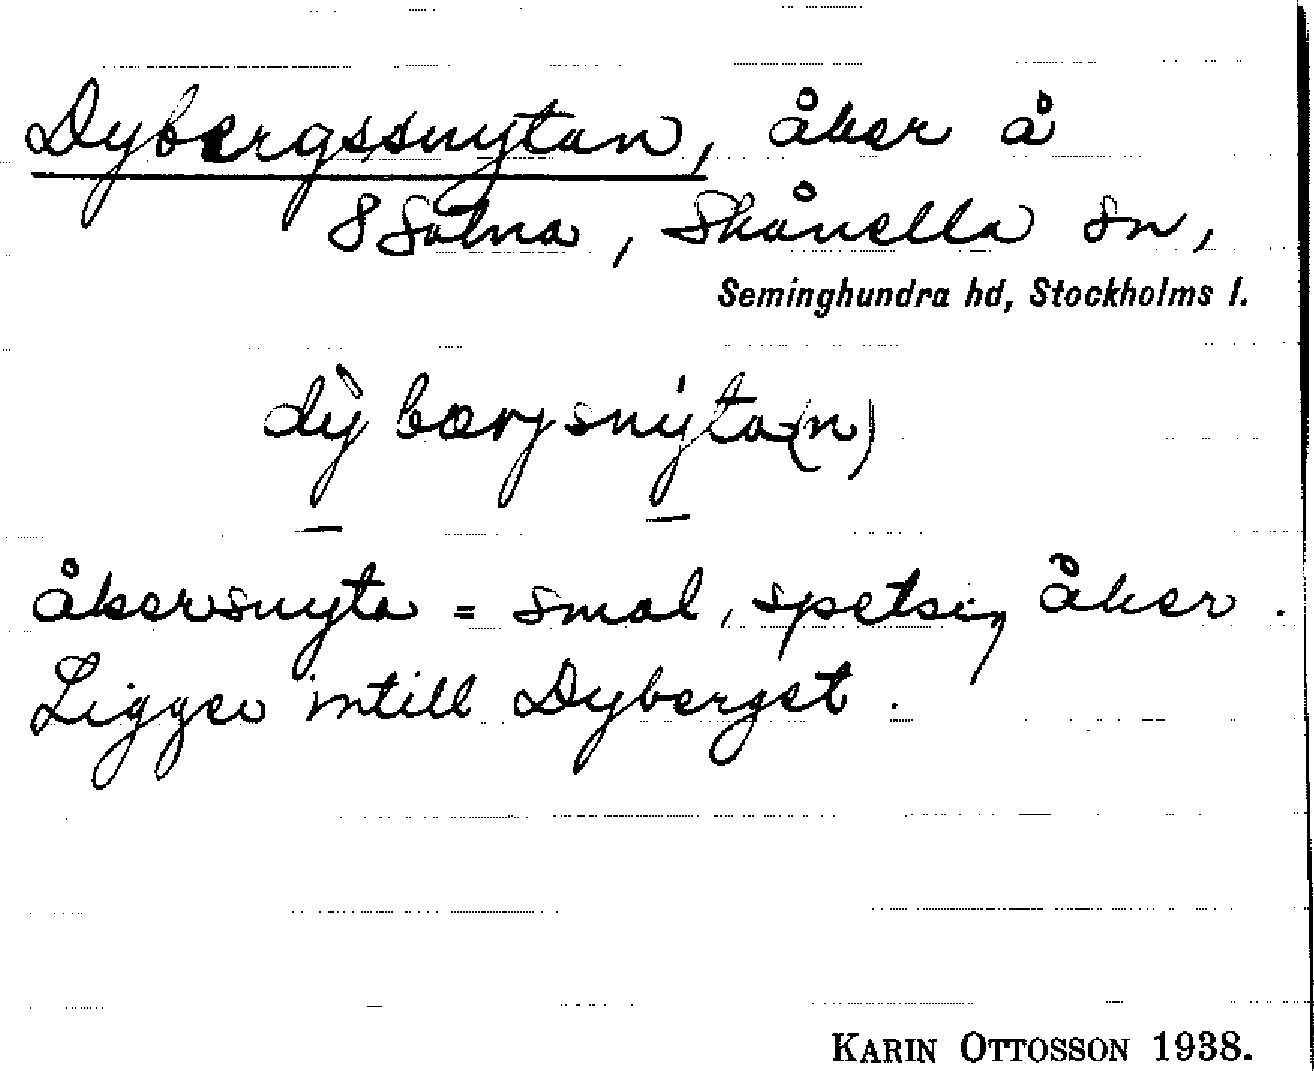 Dybergssnytan, åker å
S Solna, Skånella sn,
Seminghundra hd, Stockholms l.
dỳbærjsnýta(n)
åkersnyta = smal, spetsig åker.
Ligger intill Dyberget.
KARIN OTTOSSON 1938.